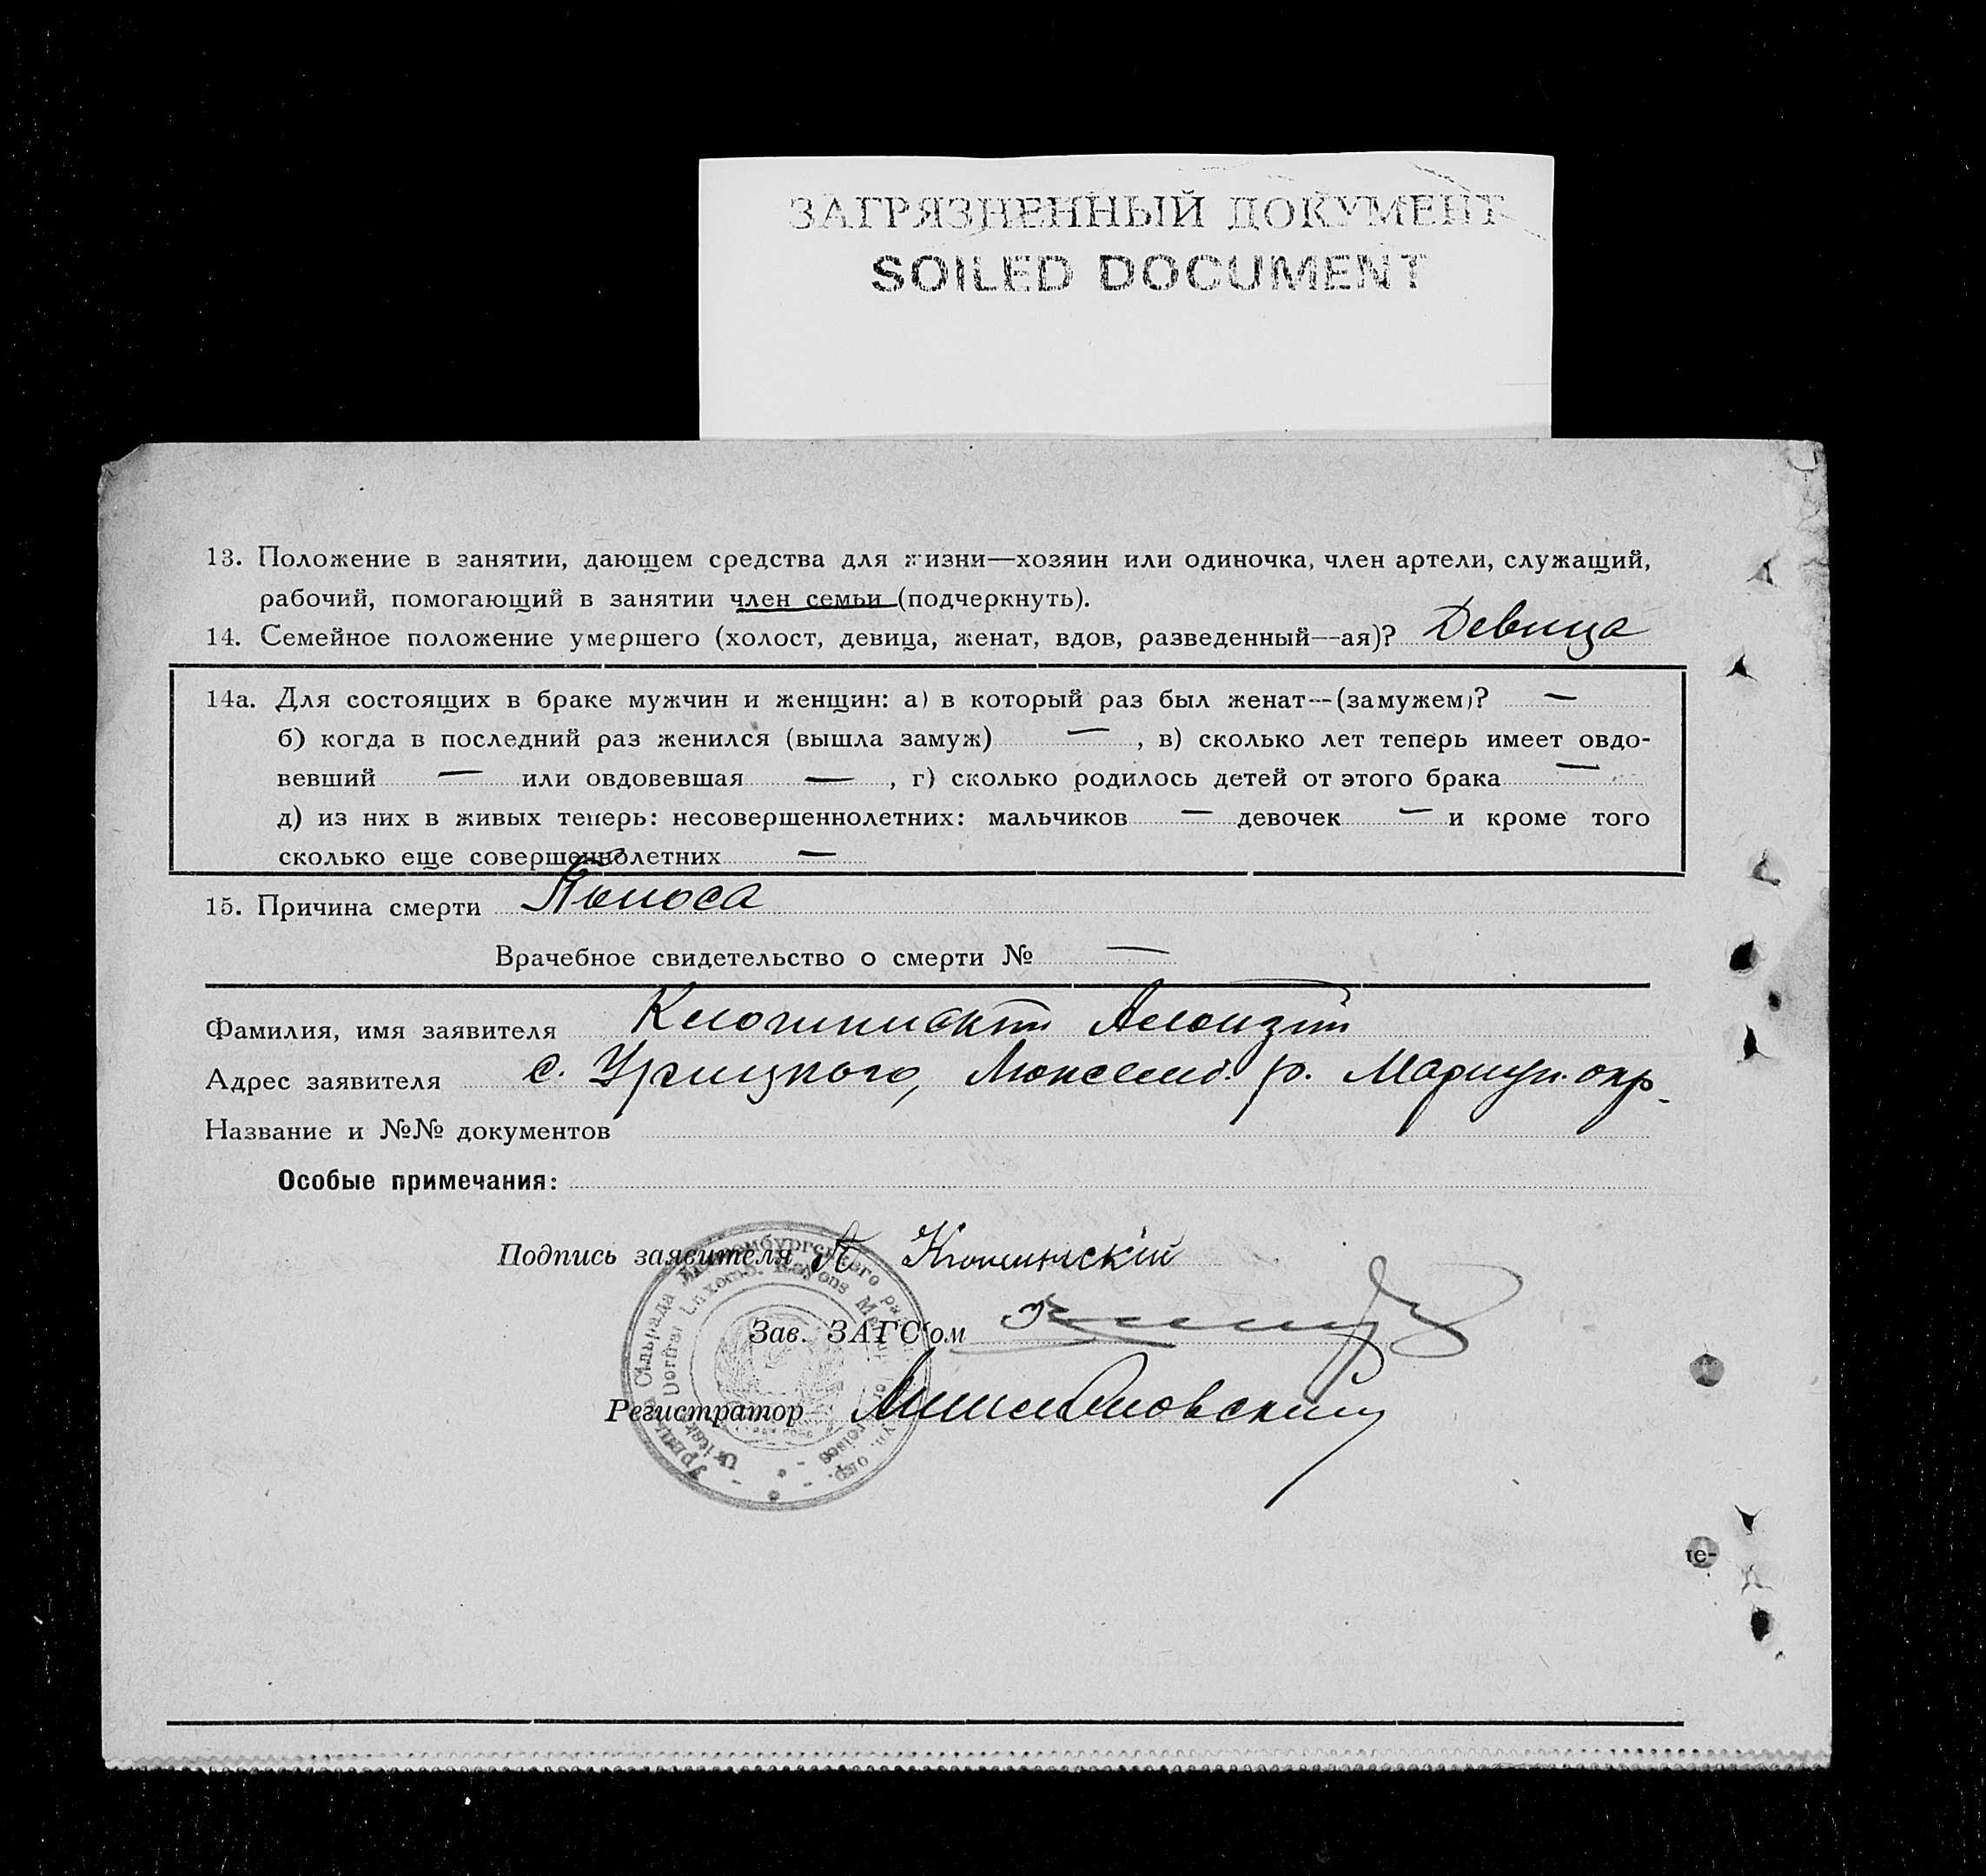 ЗАГРЯЗНЕННЫЙ ДОКУМЕНТ
SOILED DOCUMENT
13. Положение в занятии, дающем средства для жизни—хозяин или одиночка, член артели, служащий,
рабочий, помогающий в занятии член семьи (подчеркнуть).
14. Семейное положение умершего (холост, девица, женат, вдов, разведенный—ая)? Девица
14а. Для состоящих в браке мужчин и женщин: а) в который раз был женат—(замужем)? —
б) когда в последний раз женился (вышла замуж) — , в) сколько лет теперь имеет овдо-
вевший — или овдовевшая — , г) сколько родилось детей от этого брака —
д) из них в живых теперь: несовершеннолетних: мальчиков — девочек — и кроме того
сколько еще совершеннолетних —
15. Причина смерти
Врачебное свидетельство о смерти № —
Фамилия, имя заявителя
Адрес заявителя с. Урицкого, Люксемб. р. Мариуп. окр.
Название и №№ документов
Особые примечания:
Подпись заявителя
Зав. ЗАГС'ом
Регистратор
te-